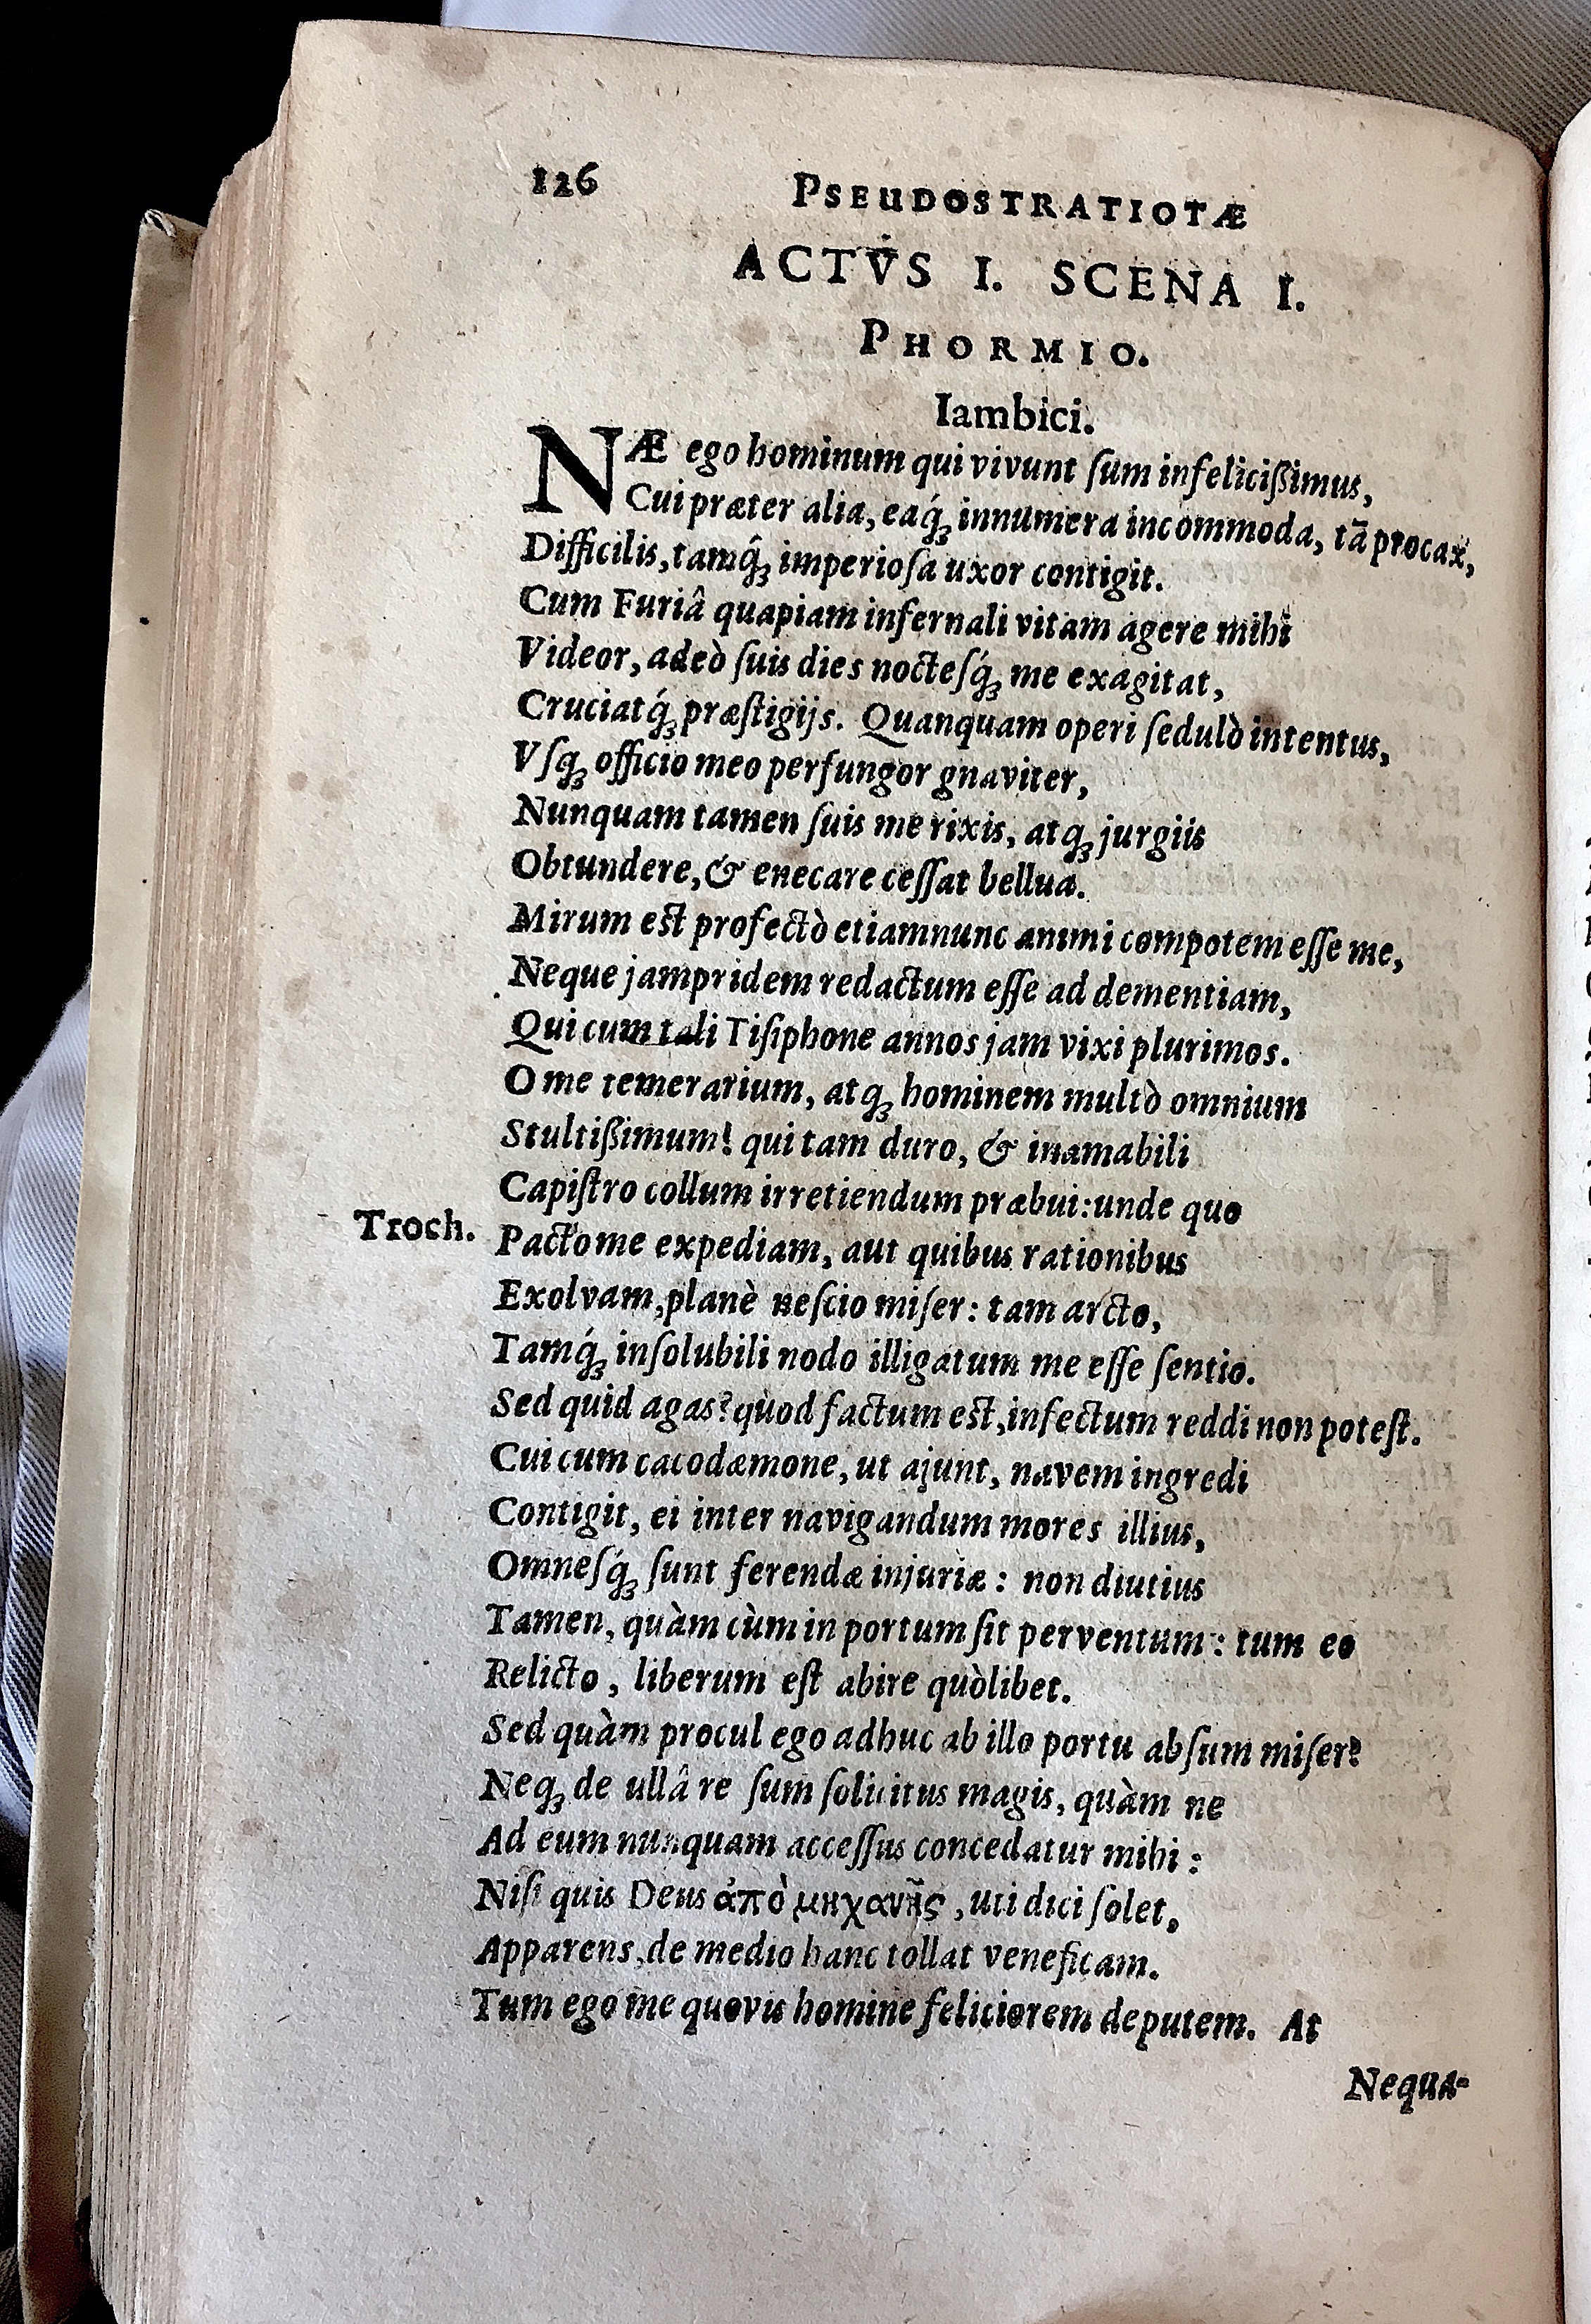 126
PSEUDOSTRATIOTÆ
ACTVS I. SCENA I.
PHORMIO.
Iambici.
NÆ ego hominum qui vivunt ſum infeliciſsimus,
Cui præter alia, eaq́; innumera incommoda, tā procax,
Difficilis, tamq́; imperioſa uxor contigit.
Cum Furiâ quapiam infernali vitam agere mihi
Videor, adeò ſuis dies nocteſq́; me exagitat,
Cruciatq́; præſtigijs. Quanquam operi ſedulò intentus,
Vſq; officio meo perfungor gnaviter,
Nunquam tamen ſuis me rixis, atq; jurgiis
Obtundere, & enecare ceſſat bellua.
Mirum est profectò etiamnunc animi compotem eſſe me,
Neque jampridem redactum eſſe ad dementiam,
Qui cum tali Tiſiphone annos jam vixi plurimos.
O me temerarium, atq; hominem multò omnium
Stultiſsimum! qui tam duro, & inamabili
Capiſtro collum irretiendum præbui: unde quo
Troch. Pacto me expediam, aut quibus rationibus
Exolvam, planè neſcio miſer: tam arcto,
Tamq́; inſolubili nodo illigatum me eſſe ſentio.
Sed quid agas? quod factum est, infectum reddi non poteſt.
Cui cum cacodæmone, ut ajunt, navem ingredi
Contigit, ei inter navigandum mores illius,
Omneſq́; ſunt ferendæ injuriæ: non diutius
Tamen, quàm cùm in portum ſit perventum: tum eo
Relicto, liberum eſt abire quòlibet.
Sed quàm procul ego adhuc ab illo portu abſum miſer?
Neq; de ullâ re ſum ſolicitus magis, quàm ne
Ad eum nunquam acceſſus concedatur mihi:
Niſi quis Deus ἀπὸ μηχανῆς, uti dici ſolet,
Apparens, de medio hanc tollat veneficam.
Tum ego me quovis homine feliciorem deputem. At
Nequa-